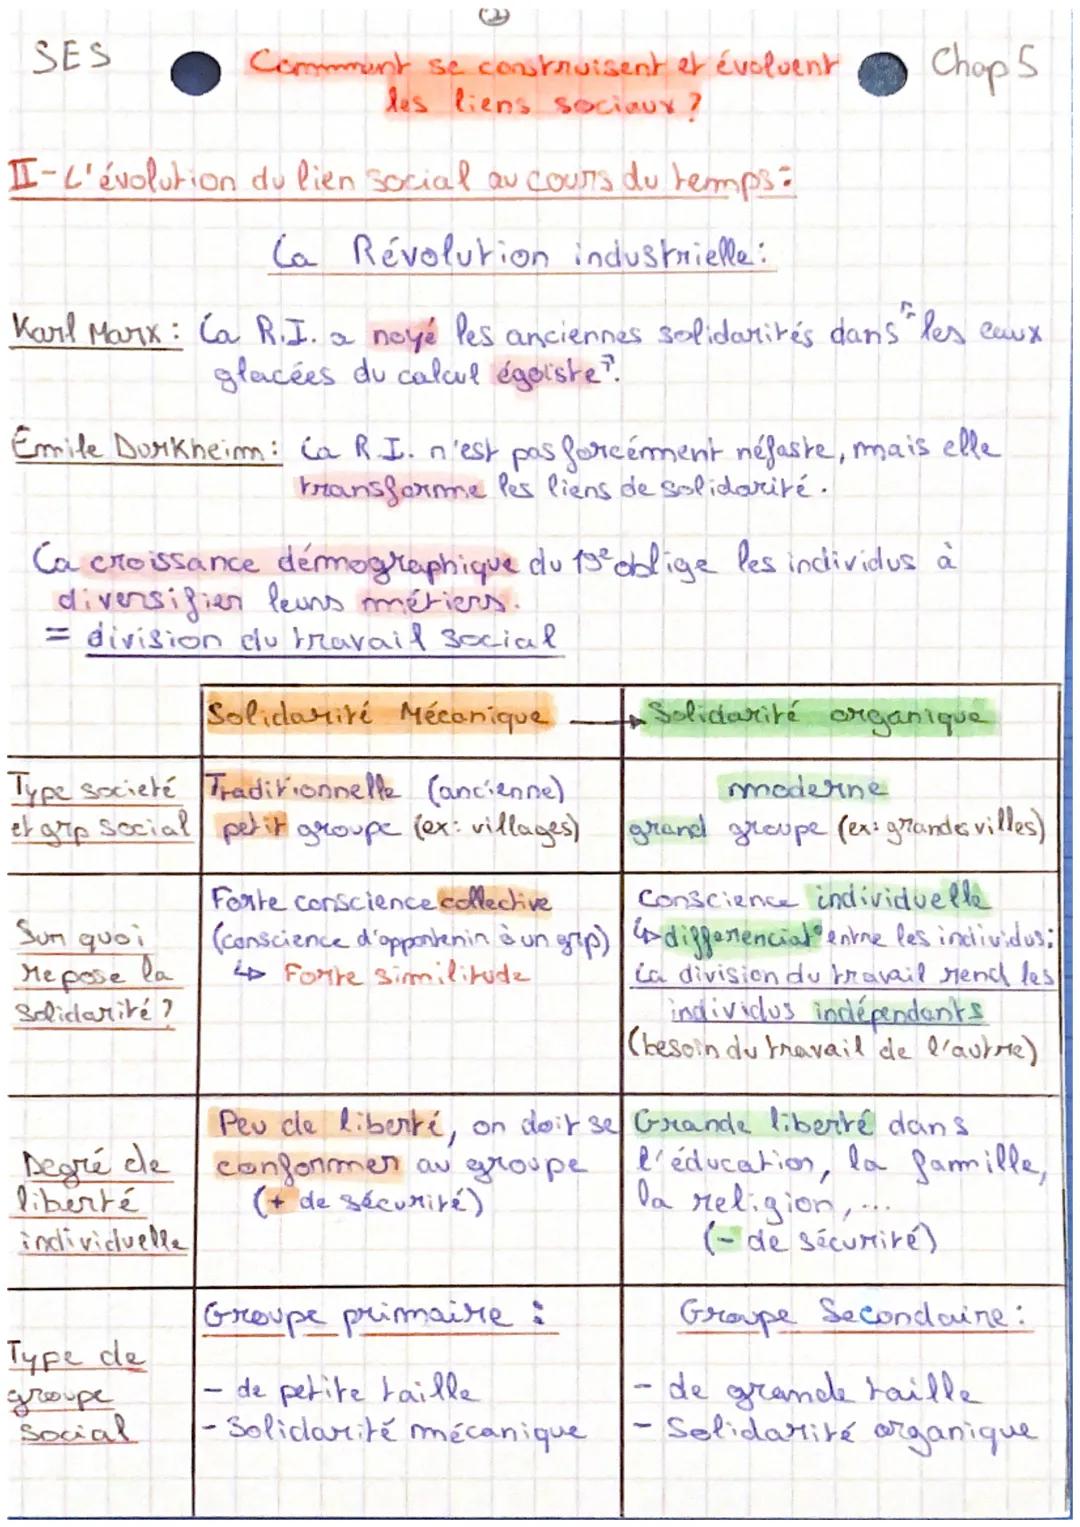 (2)
SES
Comment se construisent et évoluent
les liens sociaux ?
Chap 5
II - L'évolution du lien social au cours du temps :
La Révolution industrielle :
Karl Marx : La R.I. a noyé les anciennes solidarités dans "les eaux
glacées du calcul égoïste".
Émile Durkheim : La R.I. n'est pas forcément néfaste, mais elle
transforme les liens de solidarité.
La croissance démographique du 19e oblige les individus à
diversifier leurs métiers.
= division du travail social
Solidarité Mécanique → Solidarité organique
Type societé
et grp social
Traditionnelle (ancienne)
petit groupe (ex: villages)
moderne
grand groupe (ex: grandes villes)
Sur quoi
repose la
solidarité ?
Forte conscience collective
(conscience d'appartenir à un grp)
↳ Forte similitude
Conscience individuelle
↳ différenciat° entre les individus:
La division du travail rend les
individus indépendants
(besoin du travail de l'autre)
Degré de
liberté
individuelle
Peu de liberté, on doit se
conformer au groupe
(+ de sécurité)
Grande liberté dans
l'éducation, la famille,
la religion, ...
(- de sécurité)
Type de
groupe
social
Groupe primaire :
- de petite taille
- Solidarité mécanique
Groupe Secondaire :
- de grande taille
- Solidarité organique